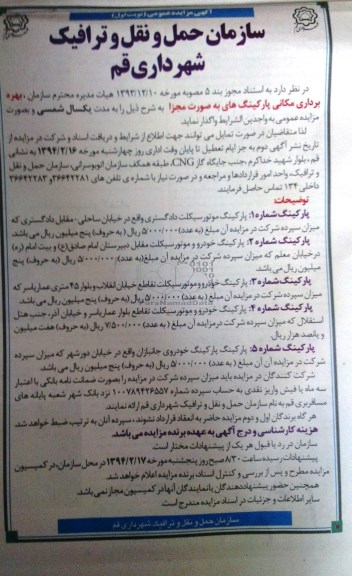 آگهی مزایده عمومی (نوبت اول)
سازمان حمل و نقل و ترافیک
شهرداری قم
در نظر دارد به استناد مجوز بند ۵ مصوبه مورخه ۱۳۹۳/۱۲/۱۰ هیات مدیره محترم سازمان، بهره
برداری مکانی پارکینگ های به صورت مجزا به شرح ذیل را به مدت یکسال شمسی و بصورت
مزایده عمومی به واجدین الشرایط واگذار نماید.
لذا متقاضیان در صورت تمایل می توانند جهت اطلاع از شرایط و دریافت اسناد و شرکت در مزایده از
تاریخ نشر آگهی دوم به جز ایام تعطیل تا پایان وقت اداری روز چهارشنبه مورخه ۱۳۹۴/۲/۱۶ به نشانی
قم، بلوار شهید خداکرم، جنب جایگاه گاز CNG، طبقه همکف سازمان اتوبوسرانی، سازمان حمل و نقل
و ترافیک، واحد امور قراردادها و مراجعه و در صورت نیاز با شماره ی تلفن های ۳۶۶۴۲۲۸۱ و ۳۶۶۴۲۲۸۳
داخلی ۱۳۴ تماس حاصل فرمایند.
توضیحات
پارکینگ شماره ۱: پارکینگ موتورسیکلت دادگستری واقع در خیابان ساحلی-مقابل دادگستری که
میزان سپرده شرکت در مزایده آن مبلغ (به عدد) ۵/۰۰۰/۰۰۰ ریال (به حروف) پنج میلیون ریال می باشد.
پارکینگ شماره ۲: پارکینگ خودرو و موتورسیکلت مقابل دبیرستان امام صادق(ع) و بیت امام (ره)
درخیابان معلم که میزان سپرده شرکت در مزایده آن مبلغ (به عدد) ۵/۰۰۰/۰۰۰ ریال (به حروف) پنج
میلیون ریال می باشد.
پارکینگ شماره ۳: پارکینگ خودرو و موتورسیکلت تقاطع خیابان انقلاب و بلوار ۴۵ متری عماریاسر که
میزان سپرده شرکت در مزایده آن مبلغ (به عدد) ۵/۰۰۰/۰۰۰ ریال (به حروف) پنج میلیون ریال می باشد.
پارکینگ شماره ۴: پارکینگ خودرو و موتورسیکلت تقاطع بلوار عماریاسر و خیابان آذر، جنب هتل
استقلال که میزان سپرده شرکت درمزایده آن مبلغ (به عدد) ۷/۵۰۰/۰۰۰ ریال (به حروف) هفت میلیون
و پانصد هزار ریال.
پارکینگ شماره ۵: پارکینگ پارکینگ خودروی جانبازان واقع در خیابان دورشهر که میزان سپرده
شرکت در مزایده آن آن مبلغ (به عدد) ۵/۰۰۰/۰۰۰ ریال (به حروف) پنج میلیون ریال می باشد.
شرکت کنندگان در مزایده باید میزان سپرده شرکت در مزایده را بصورت ضمانت نامه بانکی با اعتبار
سه ماه یا فیش واریز نقدی به حساب سپرده شماره ۱۰۰۷۸۹۴۲۶۵۵۷ نزد بانک شهر شعبه پایانه های
مسافربری قم به نام سازمان حمل و نقل و ترافیک شهرداری قم ارائه نمایند.
هر گاه برندگان اول و دوم مزایده حاضر به انعقاد قرارداد نشوند، سپرده آنان به ترتیب ضبط خواهد شد.
هزینه کارشناسی و درج آگهی به عهده برنده مزایده می باشد.
سازمان در رد یا قبول هر یک از پیشنهادات مختار است.
پیشنهادات رسیده ساعت ۸/۳۰ صبح روز پنجشنبه مورخه ۱۳۹۴/۲/۱۷ در محل سازمان، در کمیسیون
مزایده مطرح و پس از بررسی و کنترل اسناد، برنده مزایده اعلام خواهد شد.
همچنین حضور پیشنهاددهندگان یا نمایندگان آنها در کمیسیون مجاز نمی باشد.
سایر اطلاعات و جزئیات در اسناد مزایده مندرج است.
سازمان حمل و نقل و ترافیک شهرداری قم